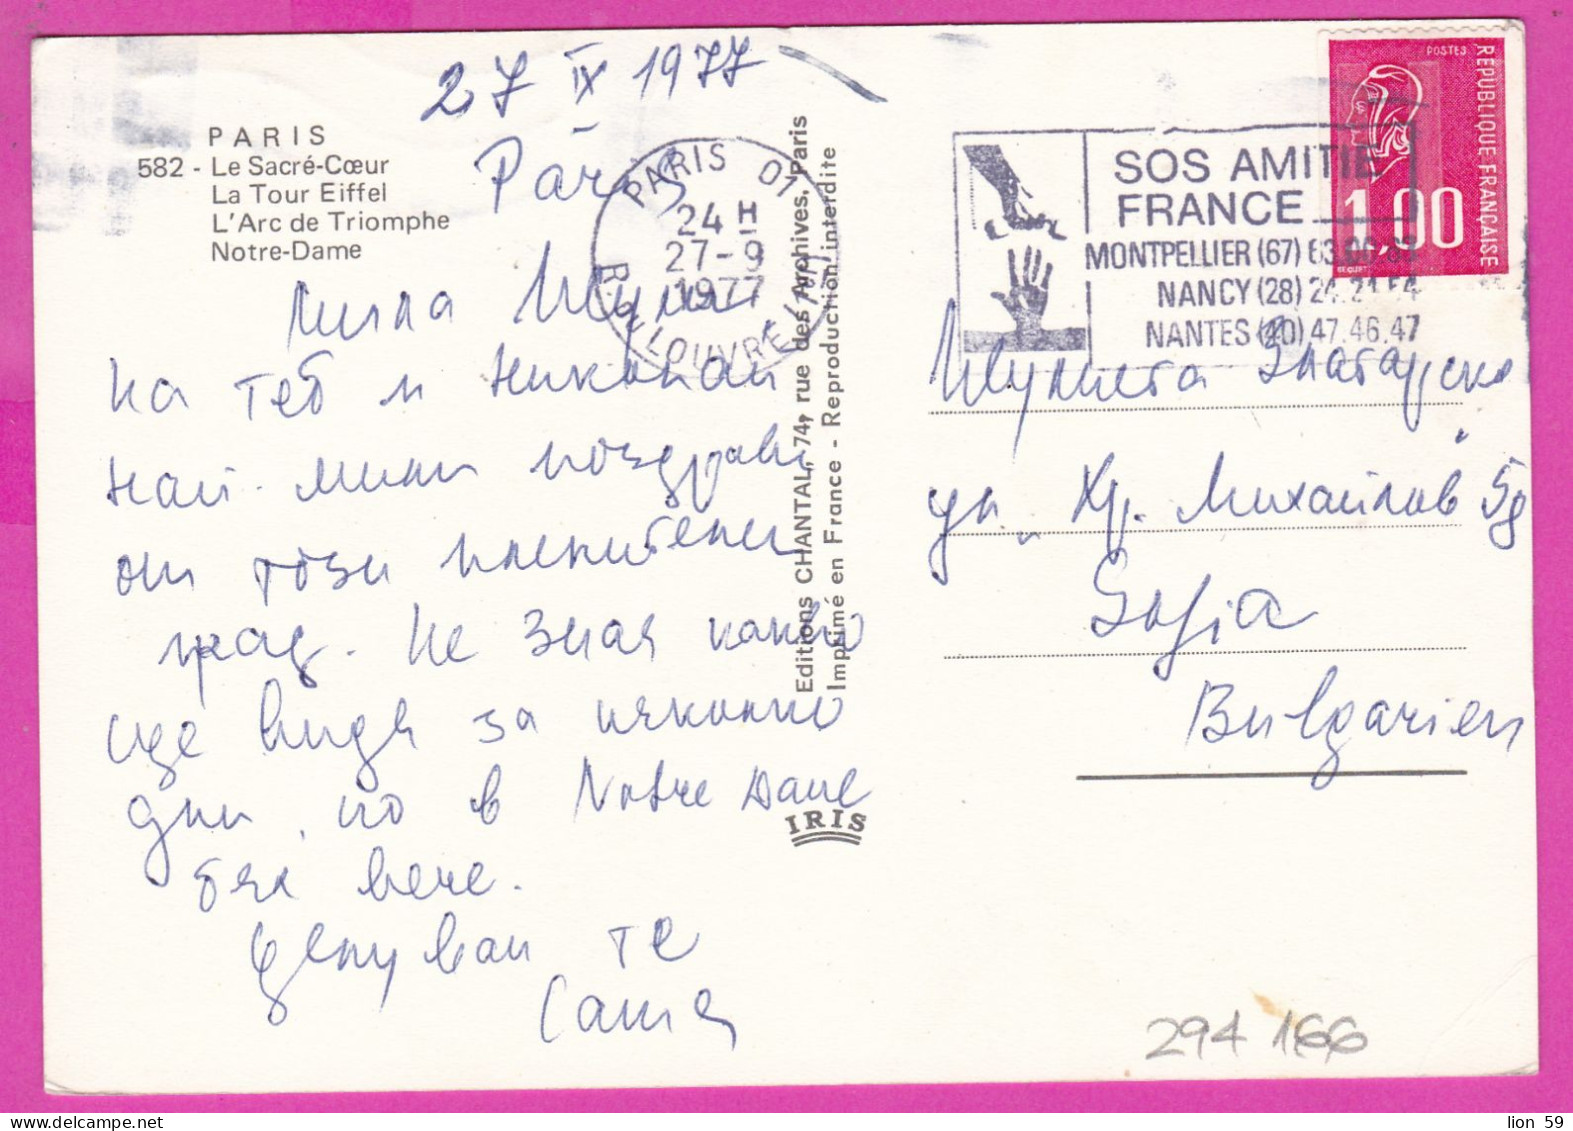 27 IX 1977
Paris
PARIS
582 - Le Sacré-Cœur
La Tour Eiffel
L'Arc de Triomphe
Notre-Dame
Мила
На теб и Николай
най-мили поздрави
от този пленителен
град. Не зная какво
ще видя за няколко
дни, но в Notre Dame
бях вече.
Целувам те
Саша
Editions CHANTAL, 74, rue des Archives, Paris
Imprimé en France - Reproduction interdite
IRIS
PARIS 01
24 H
27-9
1977
R. DU LOUVRE (1er)
SOS AMITIE
FRANCE
MONTPELLIER (67) 63.00.63
NANCY (28) 24.21.54
NANTES (40) 47.46.47
POSTES
REPUBLIQUE FRANÇAISE
1,00
Златарска
ул. Хр. Михайлов 5
Sofia
Bulgarien
294 166
lion 59